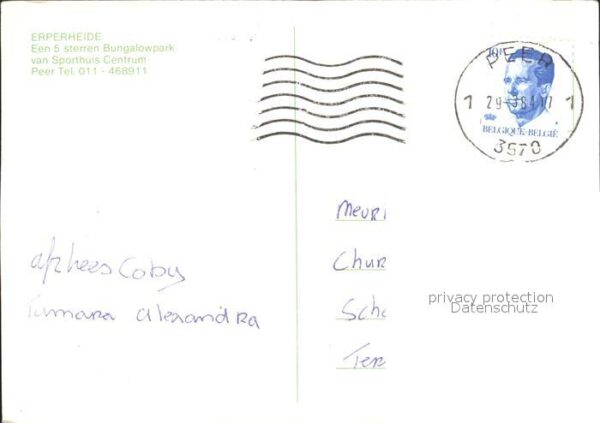 ERPERHEIDE
Een 5 sterren Bungalowpark
van Sporthuis Centrum
Peer Tel. 011 - 468911
PEER
1 29 - 84 17 1
BELGIQUE-BELGIË
3570
Meur
Chur
Sch
Ter
privacy protection
Datenschutz
Coby
Tamara Alexandra